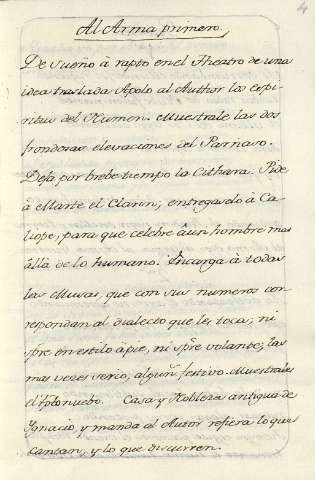 4
Al Arma primero.
De sueño à rapto en el Theatro de una
idea traslada Apolo al Author los espi-
ritus del Numen. Muestrale las dos
frondosas elevaciones del Parnaso.
Deja por brebe tiempo la Cithara. Pide
à Marte el Clarin; entregaselo à Ca-
liope, para que celebre à un hombre mas
àllà de lo humano. Encarga à todas
las Musas, que con sus numeros cor-
respondan al dialecto que les toca; ni
spre en estilo à pie, ni spre volante; las
mas vezes serio, algun festivo. Muestrales
el nuebo. Casa y Nobleza antigua de
Ignacio, y manda al Autor refiera lo que
cantan, y lo que discurren.